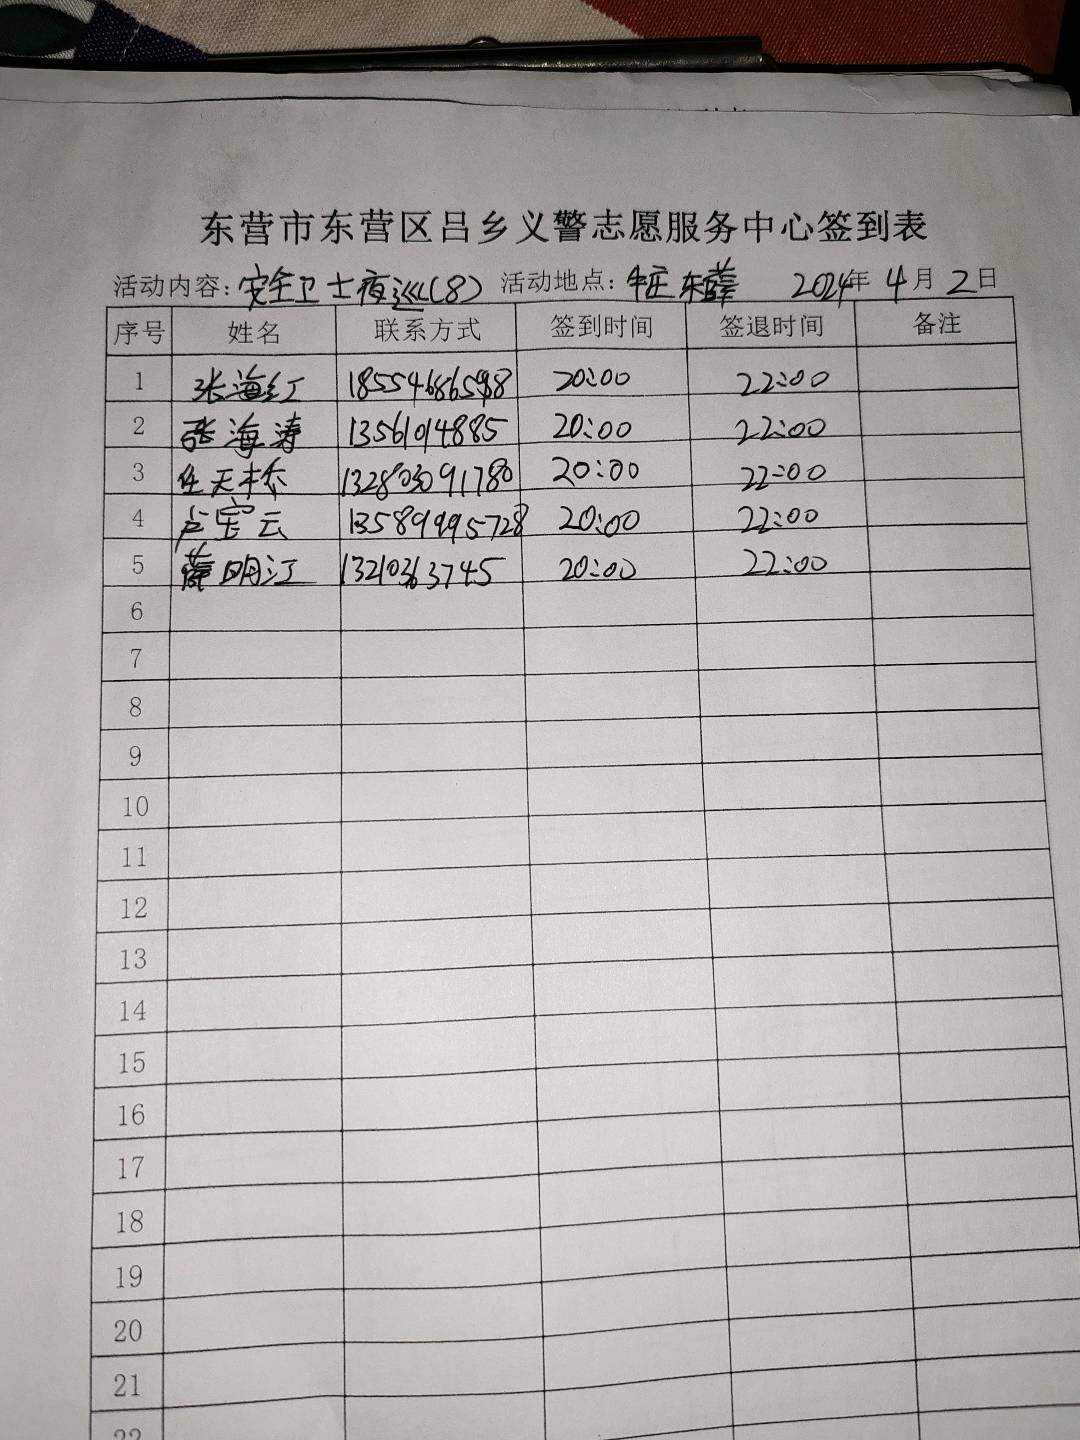 东营市东营区吕乡义警志愿服务中心签到表
活动内容：安全卫士夜巡(8) 活动地点：牛庄东薛 2024年4月2日
序号 姓名 联系方式 签到时间 签退时间 备注
1 张海红 20:00 22:00
2 张海涛 13561014885 20:00 22:00
3 任天杰 20:00 22:00
4 卢宝云 13589995728 20:00 22:00
5 薛明江 13210363745 20:00 22:00
6
7
8
9
10
11
12
13
14
15
16
17
18
19
20
21
22